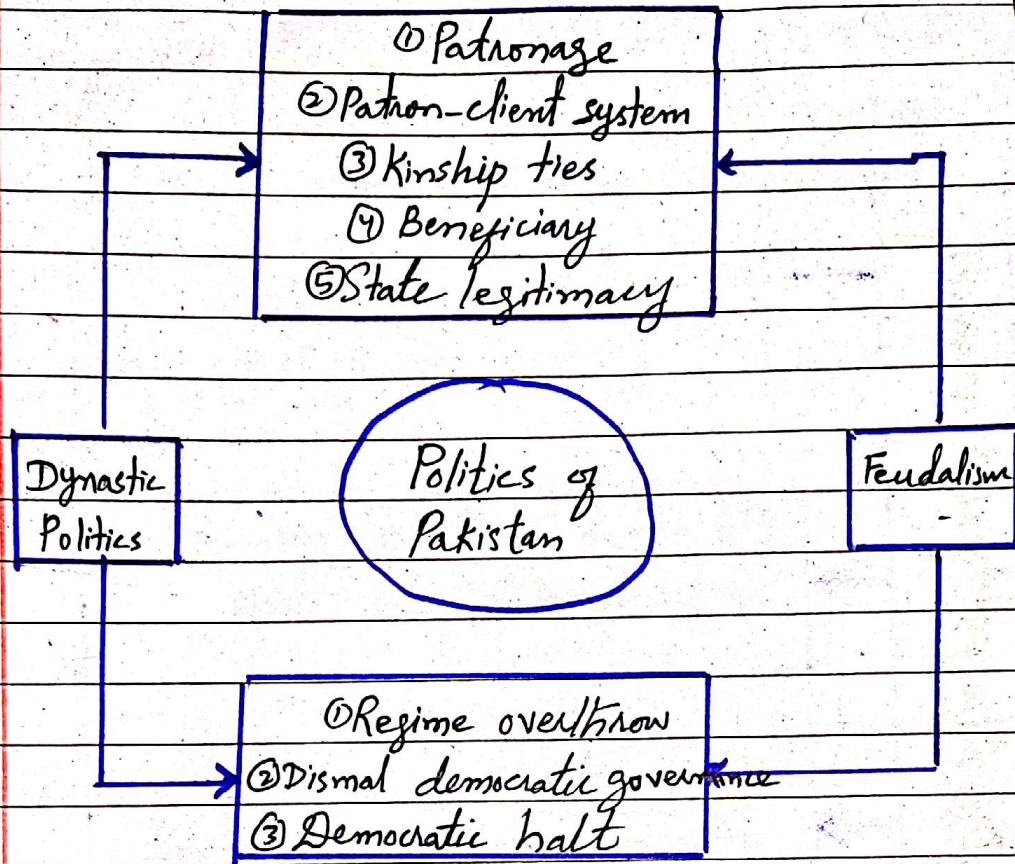 ① Patronage
② Patron-client system
③ Kinship ties
④ Beneficiary
⑤ State legitimacy
Dynastic
Politics
Politics of
Pakistan
Feudalism
① Regime overthrow
② Dismal democratic governance
③ Democratic halt